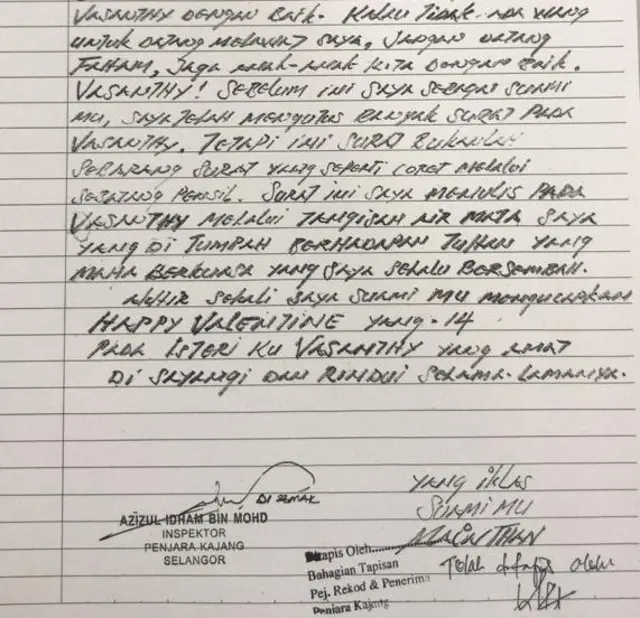 VASANTHY DENGAN BAIK. KALAU TIDAK ADA WANG
UNTUK DATANG MELAWAT SAYA, JANGAN DATANG
FAHAM, JAGA ANAK-ANAK KITA DENGAN BAIK.
VASANTHY! SEBELUM INI SAYA SEBAGAI SUAMI
MU, SAYA TELAH MENGUTUS BANYAK SURAT PADA
VASANTHY. TETAPI INI SURAT BUKANLAH
SEBARANG SURAT YANG SEPERTI CORET MELALUI
SEBATANG PENSIL. SURAT INI SAYA MENULIS PADA
VASANTHY MELALUI TANGISAN AIR MATA SAYA
YANG DI TUMPAH BERHADAPAN TUHAN YANG
MAHA BERKUASA YANG SAYA SELALU BERSEMBAH.
AKHIR SEKALI SAYA SUAMI MU MENGUCAPKAN
HAPPY VALENTINE YANG - 14
PADA ISTERI KU VASANTHY YANG AMAT
DI SAYANGI DAN RINDUI SELAMA-LAMANYA.
YANG IKLAS
SUAMI MU
DI SEMAK
AZIZUL IDHAM BIN MOHD
INSPEKTOR
PENJARA KAJANG
SELANGOR
Ditapis Oleh
Bahagian Tapisan
Pej. Rekod & Penerima
Penjara Kajang
Telah ditapis oleh